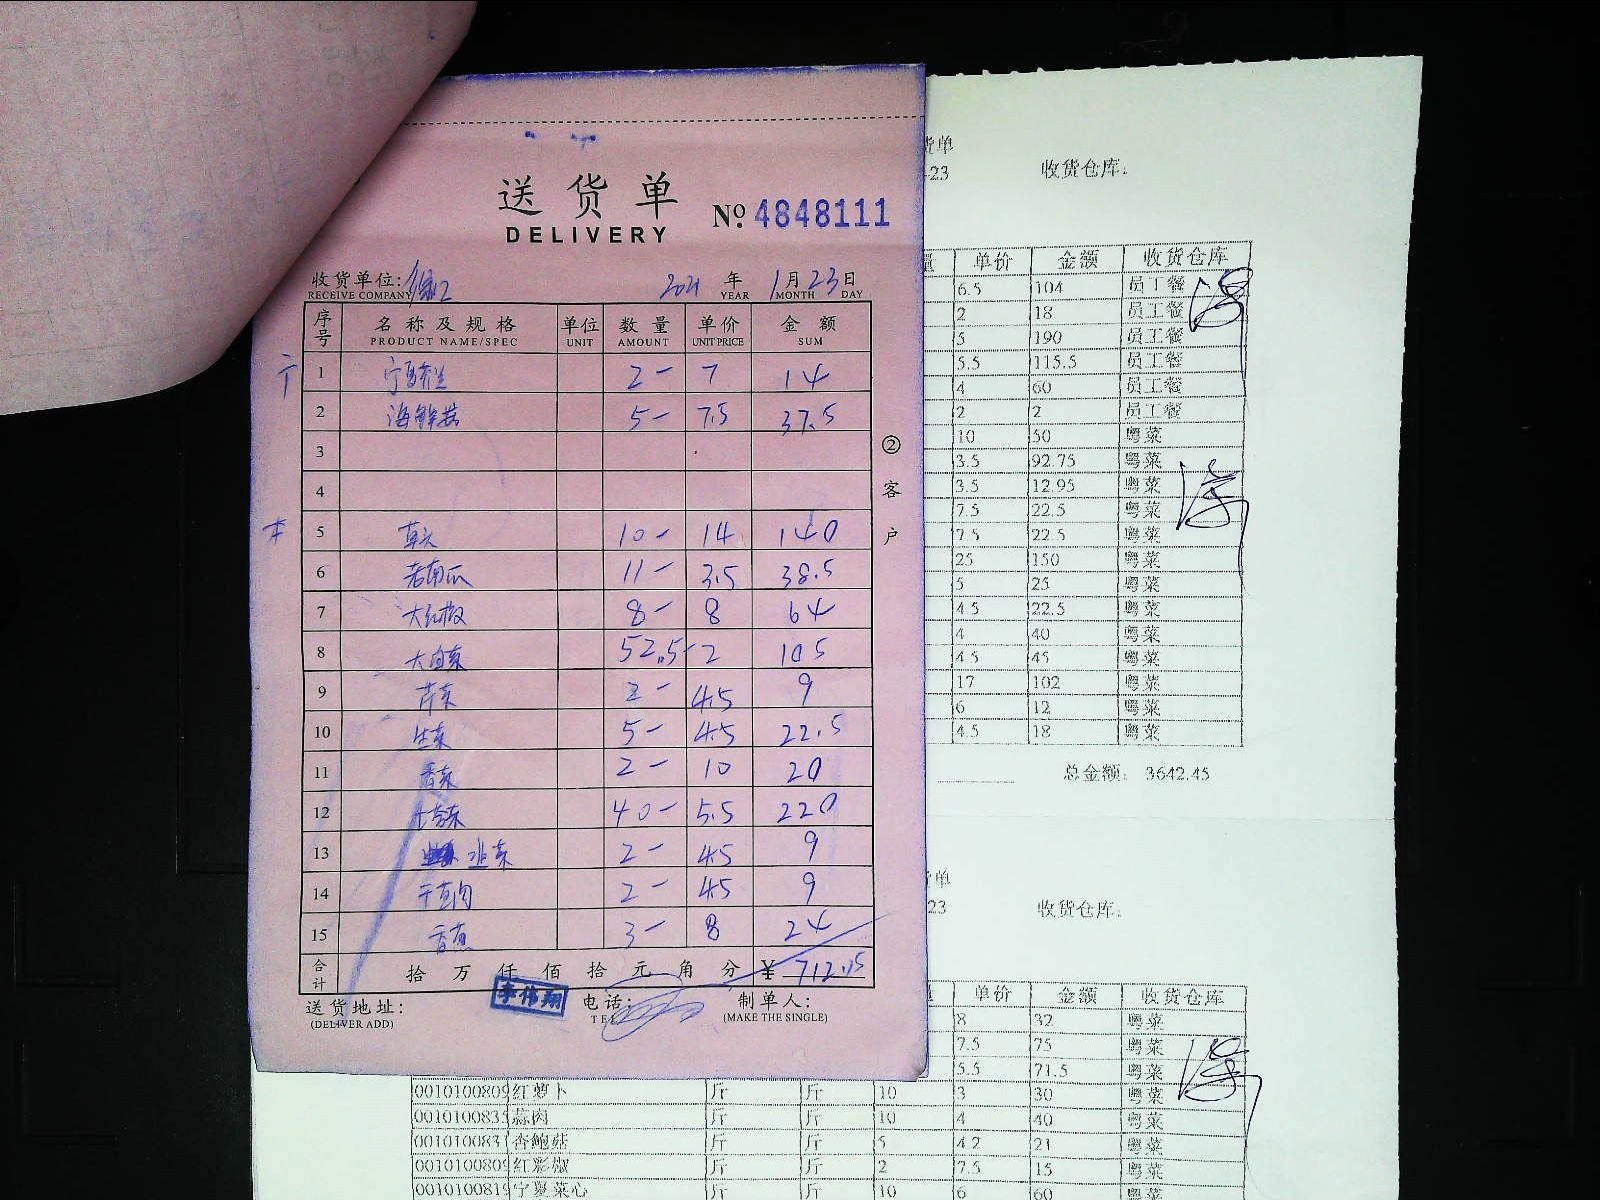 送货单
DELIVERY
No. 4848111
收货单位:
RECEIVE COMPANY
2021 年 1 月 23 日
YEAR MONTH DAY
序号 名称及规格 单位 数量 单价 金额
PRODUCT NAME/SPEC UNIT AMOUNT UNIT PRICE SUM
1 2- 7 14
2 海鲜菇 5- 7.5 37.5
3
4
5 草头 10- 14 140
6 老南瓜 11- 3.5 38.5
7 大红椒 8- 8 64
8 大白菜 52.5- 2 105
9 芹菜 2- 4.5 9
10 生菜 5- 4.5 22.5
11 香菜 2- 10 20
12 40- 5.5 220
13 韭菜 2- 4.5 9
14 2- 4.5 9
15 香蕉 3- 8 24
合计 拾 万 仟 佰 拾 元 角 分 ¥
② 客户
送货地址:
(DELIVER ADD)
李伟翔
电话:
TEL
制单人:
(MAKE THE SINGLE)
货单
-23 收货仓库:
量 单价 金额 收货仓库
6.5 104 员工餐
2 18 员工餐
5 190 员工餐
5.5 115.5 员工餐
4 60 员工餐
2 2 员工餐
10 50 粤菜
3.5 92.75 粤菜
3.5 12.95 粤菜
7.5 22.5 粤菜
7.5 22.5 粤菜
25 150 粤菜
5 25 粤菜
4.5 22.5 粤菜
4 40 粤菜
4.5 45 粤菜
17 102 粤菜
6 12 粤菜
4.5 18 粤菜
总金额: 3642.45
货单
23 收货仓库:
量 单价 金额 收货仓库
8 32 粤菜
7.5 75 粤菜
5.5 71.5 粤菜
0010100809 红萝卜 斤 斤 10 3 30 粤菜
0010100835 蒜肉 斤 斤 10 4 40 粤菜
0010100831 杏鲍菇 斤 斤 5 4.2 21 粤菜
0010100809 红彩椒 斤 斤 2 7.5 15 粤菜
0010100819 宁夏菜心 斤 斤 10 6 60 粤菜